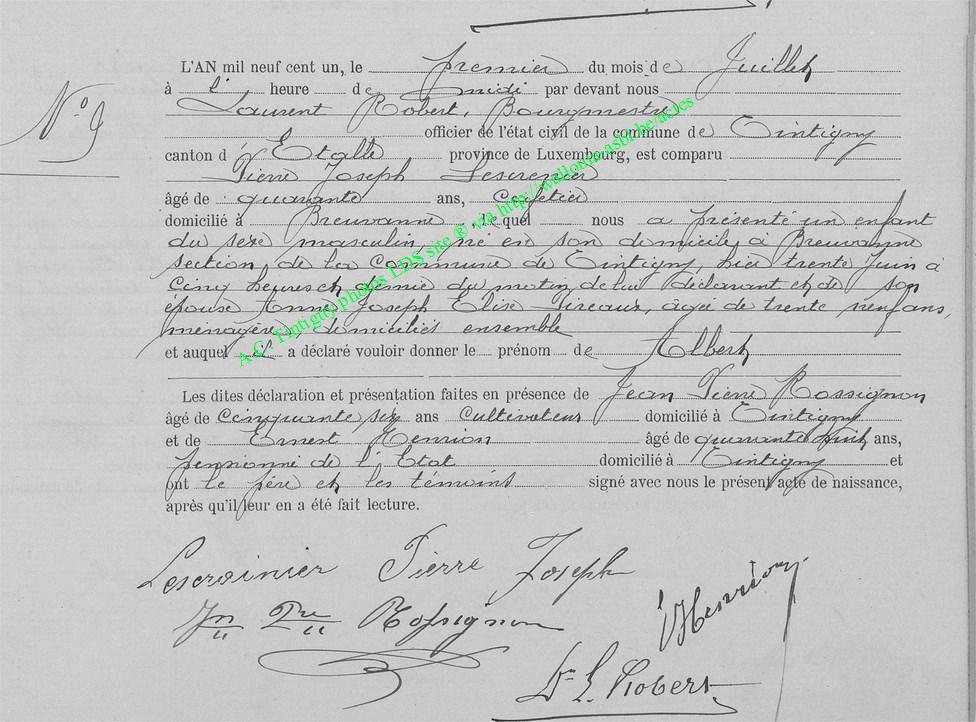 N° 9
L'AN mil neuf cent un, le premier du mois de Juillet
à l' heure de midi par devant nous
Laurent Robert, Bourgmestre
officier de l'état civil de la commune de Tintigny
canton d'Etalle province de Luxembourg, est comparu
Pierre Joseph Lescrenier
âgé de quarante ans, Cafetier
domicilié à Breuvanne le quel nous a présenté un enfant
du sexe masculin, né en son domicile à Breuvanne
section de la Commune de Tintigny, hier trente Juin à
cinq heures et demie du matin, de lui déclarant et de son
épouse Anne Joseph Elise agée de trente neuf ans,
ménagère domiciliés ensemble
et auquel il a déclaré vouloir donner le prénom de Albert
Les dites déclaration et présentation faites en présence de Jean Pierre Rossignon
âgé de cinquante six ans cultivateur domicilié à Tintigny
et de Ernest Henrion âgé de quarante huit ans,
pensionné de l'Etat domicilié à Tintigny et
ont le père et les témoins signé avec nous le présent acte de naissance,
après qu'il leur en a été fait lecture.
A.C. Tintigny photos LDS site ® via http://wallonia.asbl.be/actes
Lescrainier Pierre Joseph
Jn Pre Rossignon
EHenrion
Dr L. Robert